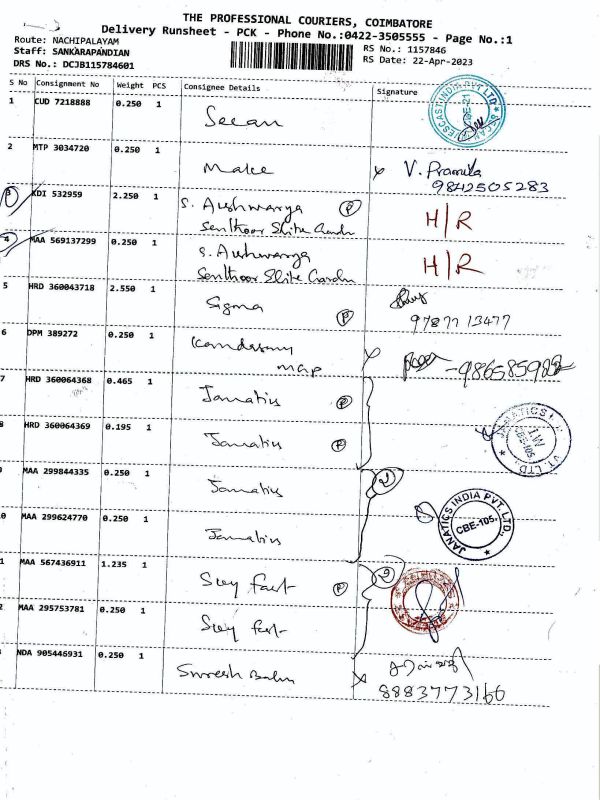 THE PROFESSIONAL COURIERS, COIMBATORE
Delivery Runsheet - PCK - Phone No.:0422-3505555 - Page No.:1
Route: NACHIPALAYAM
RS No.: 1157846
Staff: SANKARAPANDIAN
RS Date: 22-Apr-2023
DRS No.: DCJB115784601
S No Consignment No Weight PCS Consignee Details Signature
1 CUD 7218888 0.250 1
2 MTP 3034720 0.250 1 V. Pramila
9842505283
3 KDI 532959 2.250 1 S. Aishwarya P H/R
Senthoor Elite Garden
4 MAA 569137299 0.250 1 S. Aishwarya H/R
Senthoor Elite Garden
5 HRD 360043718 2.550 1 Sigma P
9787713477
6 DPM 389272 0.250 1
map
7 HRD 360064368 0.465 1 Janatics P
8 HRD 360064369 0.195 1 Janatics P
JANATICS
CBE-105
MAA 299844335 0.250 1 Janatics 2
0 MAA 299624770 0.250 1 Janatics
JANATICS INDIA PVT. LTD.,
CBE-105.
1 MAA 567436911 1.235 1 P 2
2 MAA 295753781 0.250 1
NDA 905446931 0.250 1 Suresh Babu
8883773166